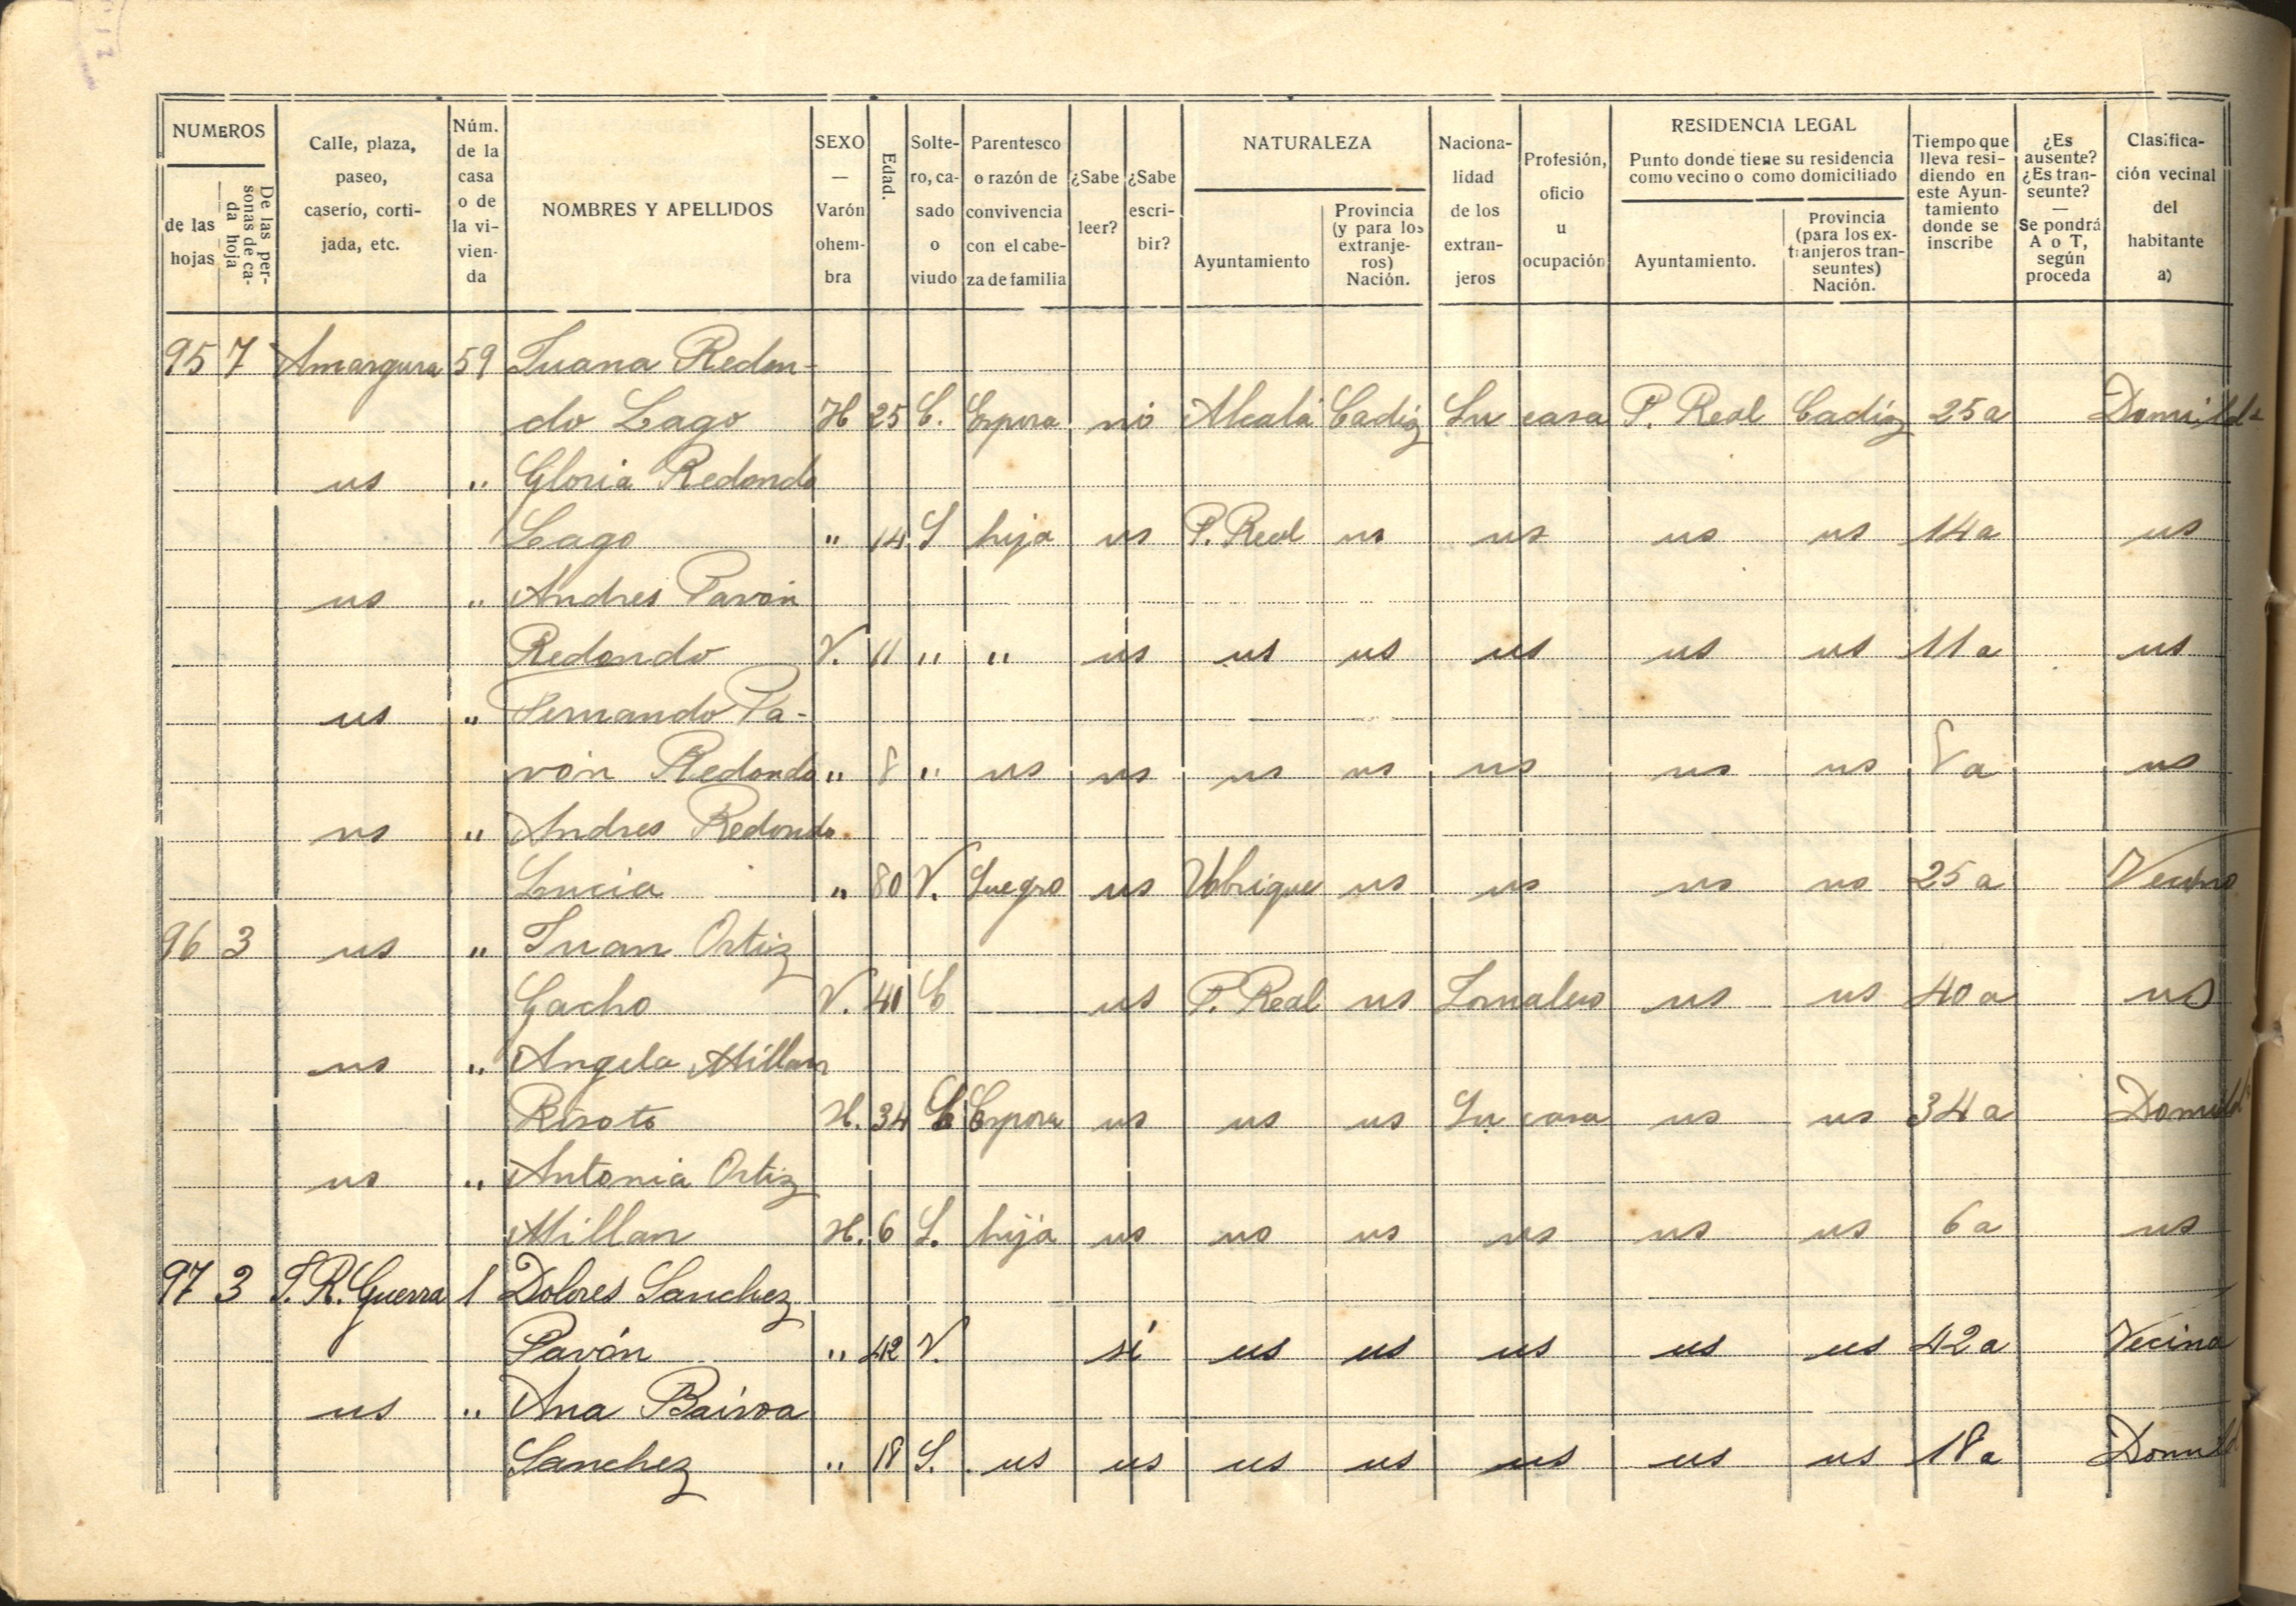 NUMEROS
de las hojas
De las personas de cada hoja
Calle, plaza, paseo, caserío, cortijada, etc.
Núm. de la casa o de la vivienda
NOMBRES Y APELLIDOS
SEXO — Varón ohembra
Edad.
Soltero, casado o viudo
Parentesco o razón de convivencia con el cabeza de familia
¿Sabe leer?
¿Sabe escribir?
NATURALEZA
Ayuntamiento
Provincia (y para los extranjeros) Nación.
Nacionalidad de los extranjeros
Profesión, oficio u ocupación
RESIDENCIA LEGAL
Punto donde tiene su residencia como vecino o como domiciliado
Ayuntamiento.
Provincia (para los extranjeros transeuntes) Nación.
Tiempo que lleva residiendo en este Ayuntamiento donde se inscribe
¿Es ausente? ¿Es transeunte? — Se pondrá A o T, según proceda
Clasificación vecinal del habitante a)
95 7 Amargura 59 Juana Redon-
do Lago H 25 C. Espora no Alcalá Cadiz Su casa P. Real Cadiz 25 a
us " Gloria Redondo
Lago " 14 S hija us P. Real us us us us 14 a us
us " Andres Pavón
Redondo V. 11 " " us us us us us us 11 a us
us " Fernando Pa-
vón Redondo " 8 " us us us us us us us 8 a us
us " Andres Redondo
Lucia " 80 V. Suegro us Ubrique us us us us 25 a Vecino
96 3 us " Juan Ortiz
Gacho V. 41 C — us P. Real us Jornalero us us 40 a us
us " Angela Millan
H. 34 C Espora us us us Su casa us us 34 a
us " Antonia Ortiz
Millan H. 6 S. hija us us us us us us 6 a us
97 3 J. R. Guerra 1 Dolores Sanchez
Pavón " 42 V. si us us us us us 42 a Vecina
us " Ana
Sanchez " 18 S. us us us us us us us 18 a